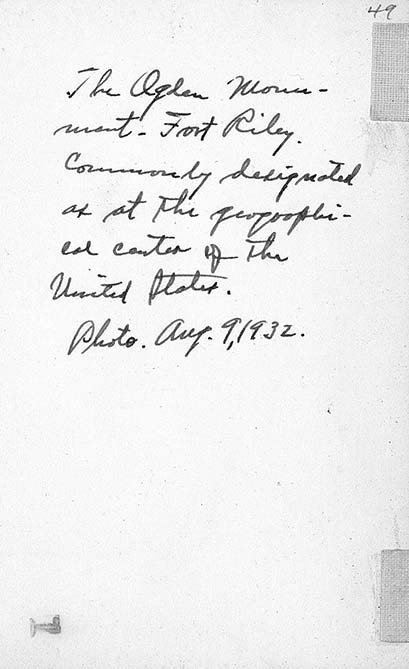 49
The Ogden Monu-
ment - Fort Riley.
Commonly designated
as at the geographi-
cal center of the
United States.
Photo. Aug. 9, 1932.